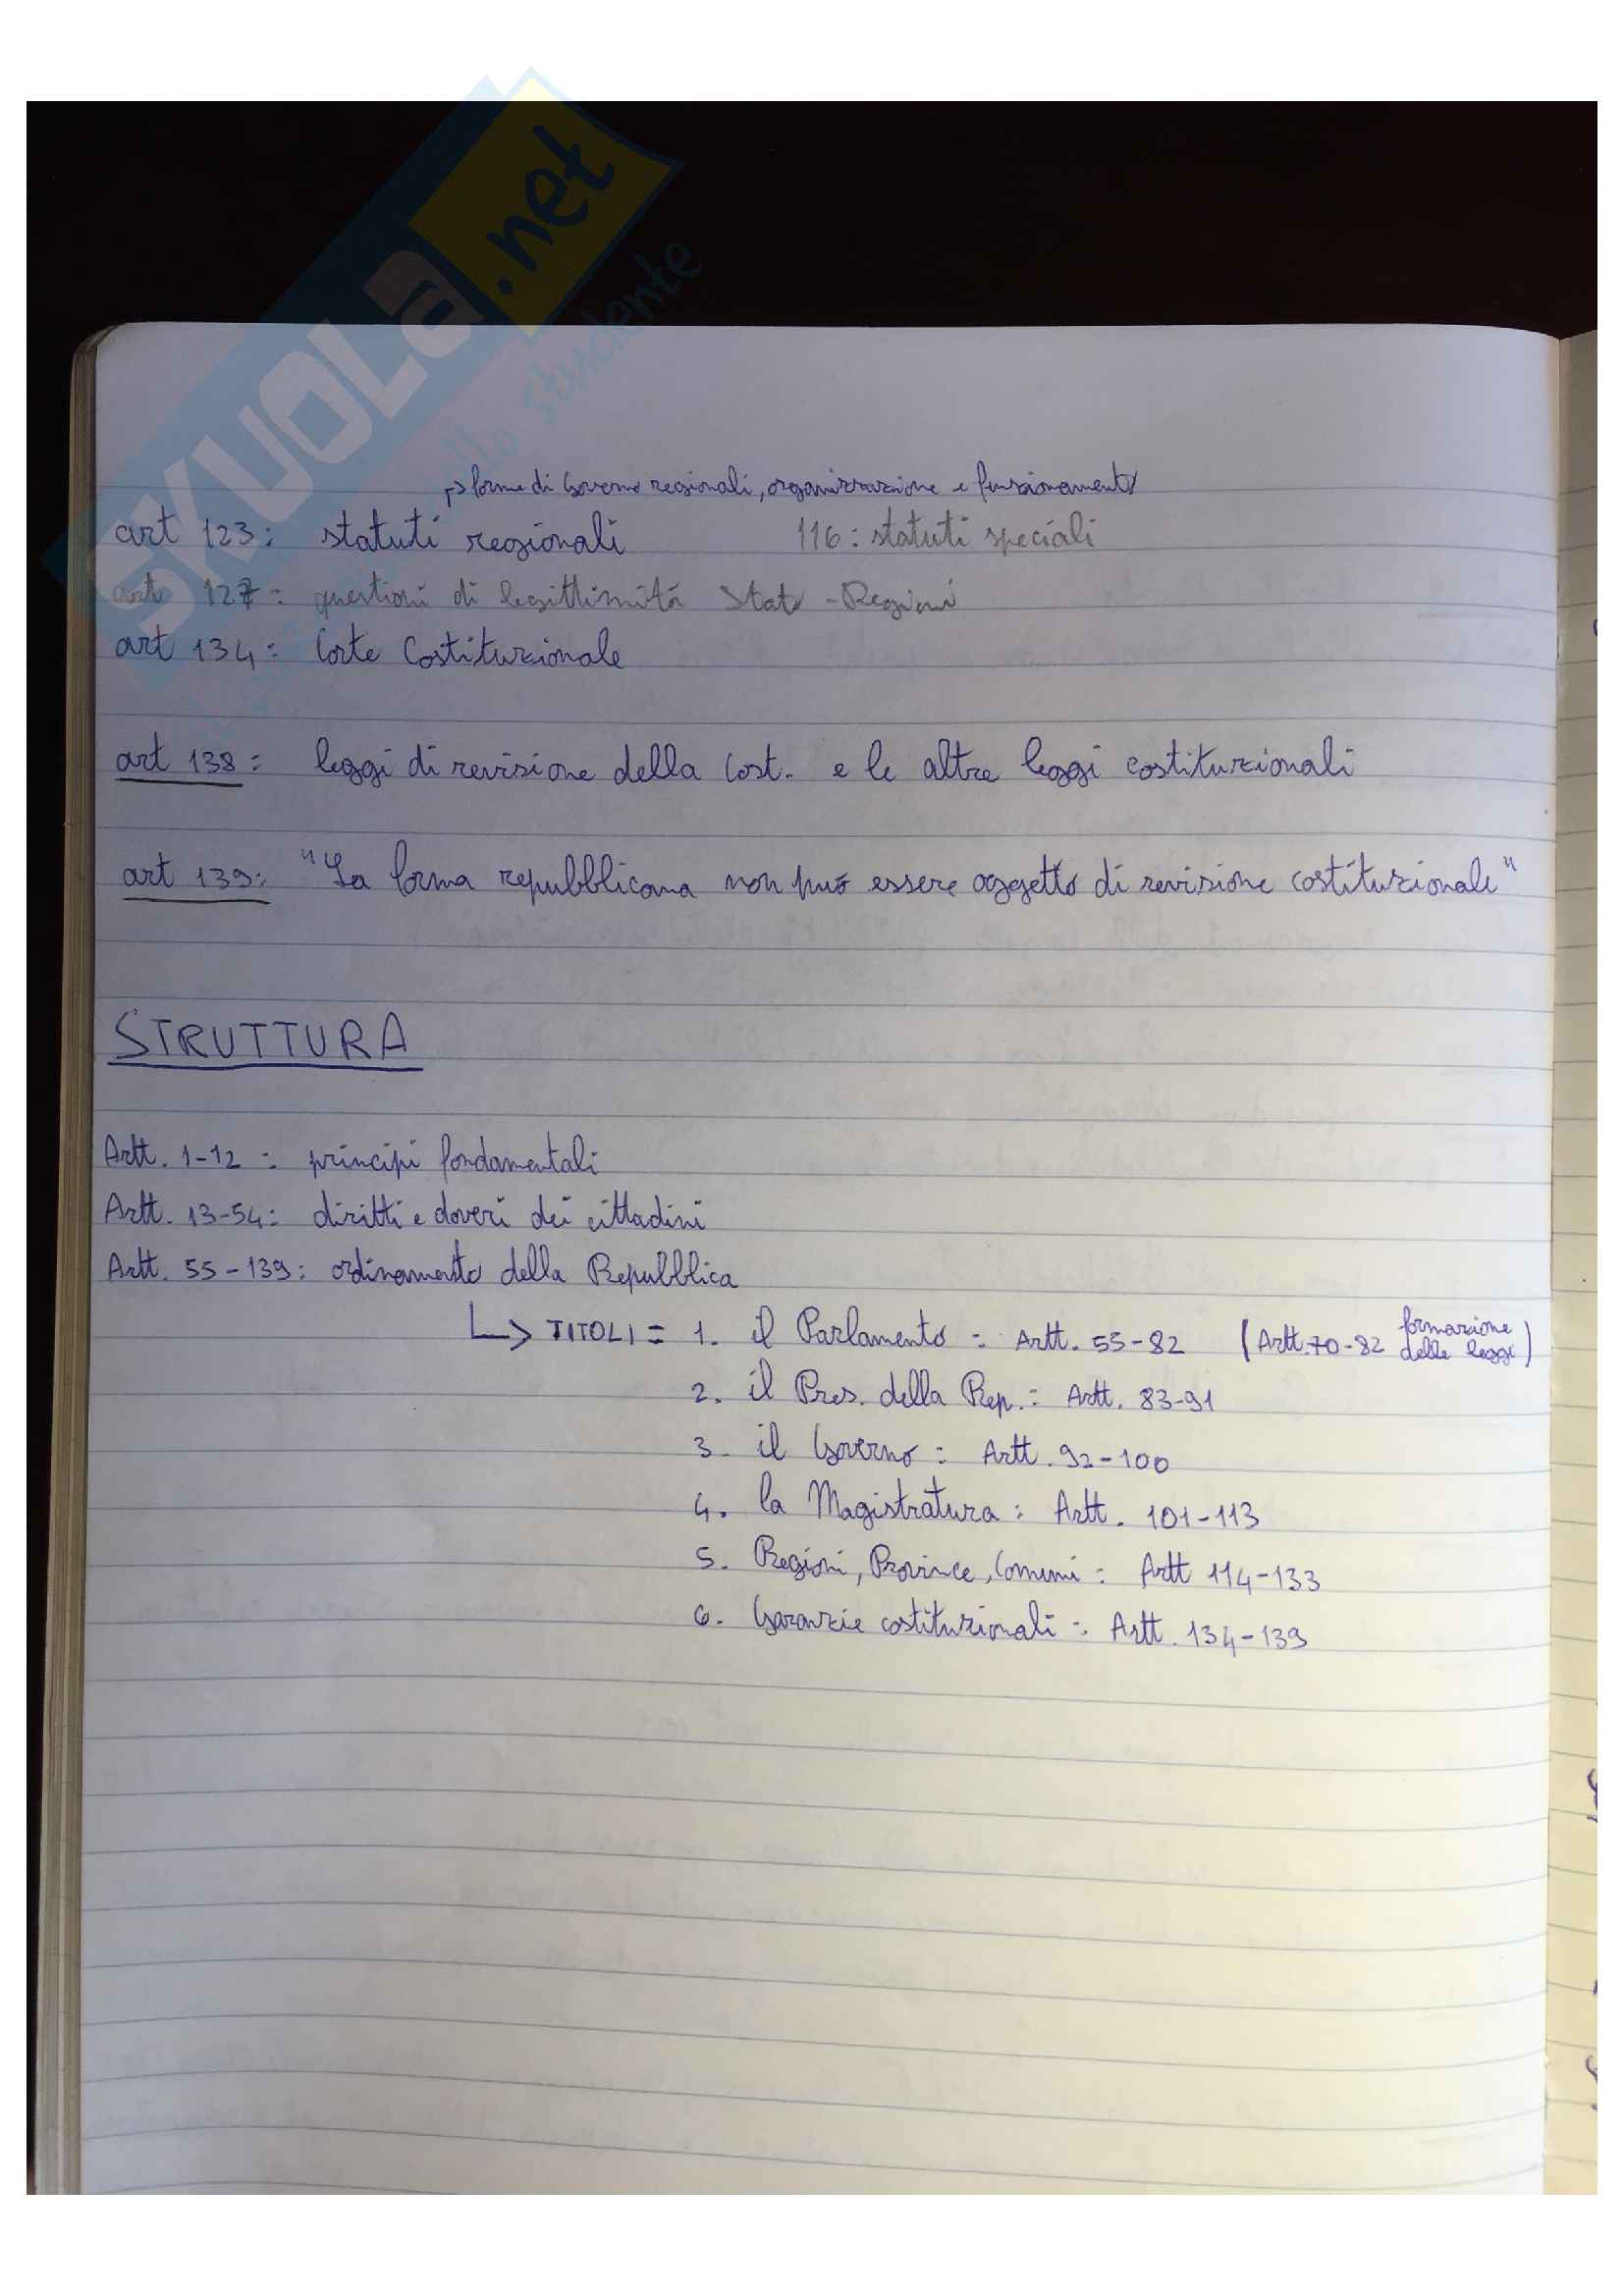 SKUOLA.net
dello studente
↱> forme di Governo regionali, organizzazione e funzionamento
art 123: statuti regionali 116: statuti speciali
art 127: questioni di legittimità Stato-Regioni
art 134: Corte Costituzionale
art 138: leggi di revisione della Cost. e le altre leggi costituzionali
art 139: "La forma repubblicana non può essere oggetto di revisione costituzionale"
STRUTTURA
Artt. 1-12: principi fondamentali
Artt. 13-54: diritti e doveri dei cittadini
Artt. 55-139: ordinamento della Repubblica
↳ TITOLI = 1. il Parlamento: Artt. 55-82 (Artt. 70-82 formazione delle leggi)
2. il Pres. della Rep.: Artt. 83-91
3. il Governo: Artt. 92-100
4. la Magistratura: Artt. 101-113
5. Regioni, Province, Comuni: Artt 114-133
6. Garanzie costituzionali: Artt. 134-139